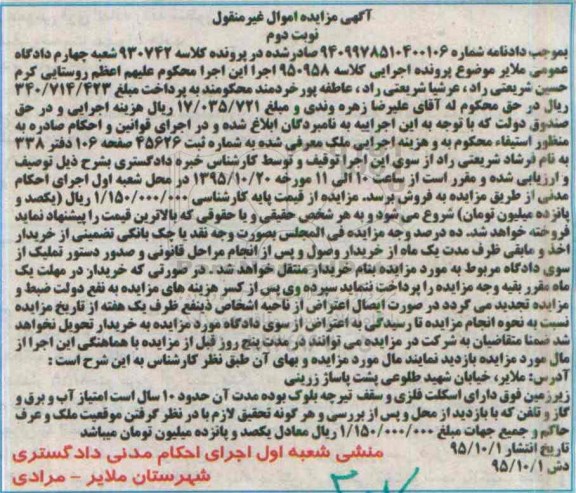 آگهی مزایده اموال غیرمنقول
نوبت دوم
بموجب دادنامه شماره ۹۴۰۹۹۷۸۵۱۰۴۰۰۱۰۶ صادرشده در پرونده کلاسه ۹۳۰۷۴۲ شعبه چهارم دادگاه
عمومی ملایر موضوع پرونده اجرایی کلاسه ۹۵۰۹۵۸ اجرا این اجرا محکوم علیهم اعظم روستایی کرم
حسین شریعتی راد ، عرشیا شریعتی راد ، عاطفه پورخردمند محکومند به پرداخت مبلغ ۳۴۰/۷۱۴/۴۲۳
ریال در حق محکوم له آقای علیرضا زهره وندی و مبلغ ۱۷/۰۳۵/۷۲۱ ریال هزینه اجرایی و در حق
صندوق دولت که با توجه به این اجراییه به نامبردگان ابلاغ شده و در اجرای قوانین و احکام صادره به
منظور استیفاء محکوم به و هزینه اجرایی ملک معرفی شده به شماره ثبت ۴۵۶۲۶ صفحه ۱۰۶ دفتر ۳۳۸
به نام فرشاد شریعتی راد از سوی این اجرا توقیف و توسط کارشناس خبره دادگستری بشرح ذیل توصیف
و ارزیابی شده و مقرر است از ساعت ۱۰ الی ۱۱ مورخه ۱۳۹۵/۱۰/۲۰ در محل شعبه اول اجرای احکام
مدنی از طریق مزایده به فروش برسد. مزایده از قیمت پایه کارشناسی ۱/۱۵۰/۰۰۰/۰۰۰ ریال (یکصد و
پانزده میلیون تومان) شروع می شود و به هر شخص حقیقی و یا حقوقی که بالاترین قیمت را پیشنهاد نماید
فروخته خواهد شد. ده درصد وجه مزایده فی المجلس بصورت وجه نقد یا چک بانکی تضمینی از خریدار
اخذ و مابقی ظرف مدت یک ماه از خریدار وصول و پس از انجام مراحل قانونی و صدور دستور تملیک از
سوی دادگاه مربوط به مورد مزایده بنام خریدار منتقل خواهد شد . در صورتی که خریدار در مهلت یک
ماه مقرر بقیه وجه مزایده را پرداخت ننماید سپرده وی پس از کسر هزینه های مزایده به نفع دولت ضبط و
مزایده تجدید می گردد در صورت ایصال اعتراض از ناحیه اشخاص ذینفع ظرف یک هفته از تاریخ مزایده
نسبت به نحوه انجام مزایده تا رسیدگی به اعتراض از سوی دادگاه مورد مزایده به خریدار تحویل نخواهد
شد ضمنا متقاضیان به شرکت در مزایده می توانند در مدت پنج روز قبل از مزایده با هماهنگی این اجرا از
مال مورد مزایده بازدید نمایند مال مورد مزایده و بهای آن طبق نظر کارشناس به این شرح است :
آدرس: ملایر، خیابان شهید طلوعی پشت پاساژ زرینی
زیرزمین فوق دارای اسکلت فلزی و سقف تیرچه بلوک بوده مدت آن حدود ۱۰ سال است امتیاز آب و برق و
گاز و تلفن که با بازدید از محل و پس از بررسی و هر گونه تحقیق لازم با در نظر گرفتن موقعیت ملک و عرف
حاکم و جمیع جهات مبلغ ۱/۱۵۰/۰۰۰/۰۰۰ ریال معادل یکصد و پانزده میلیون تومان میباشد
تاریخ انتشار ۹۵/۱۰/۱
دش ۹۵/۱۰/۱
منشی شعبه اول اجرای احکام مدنی دادگستری
شهرستان ملایر - مرادی